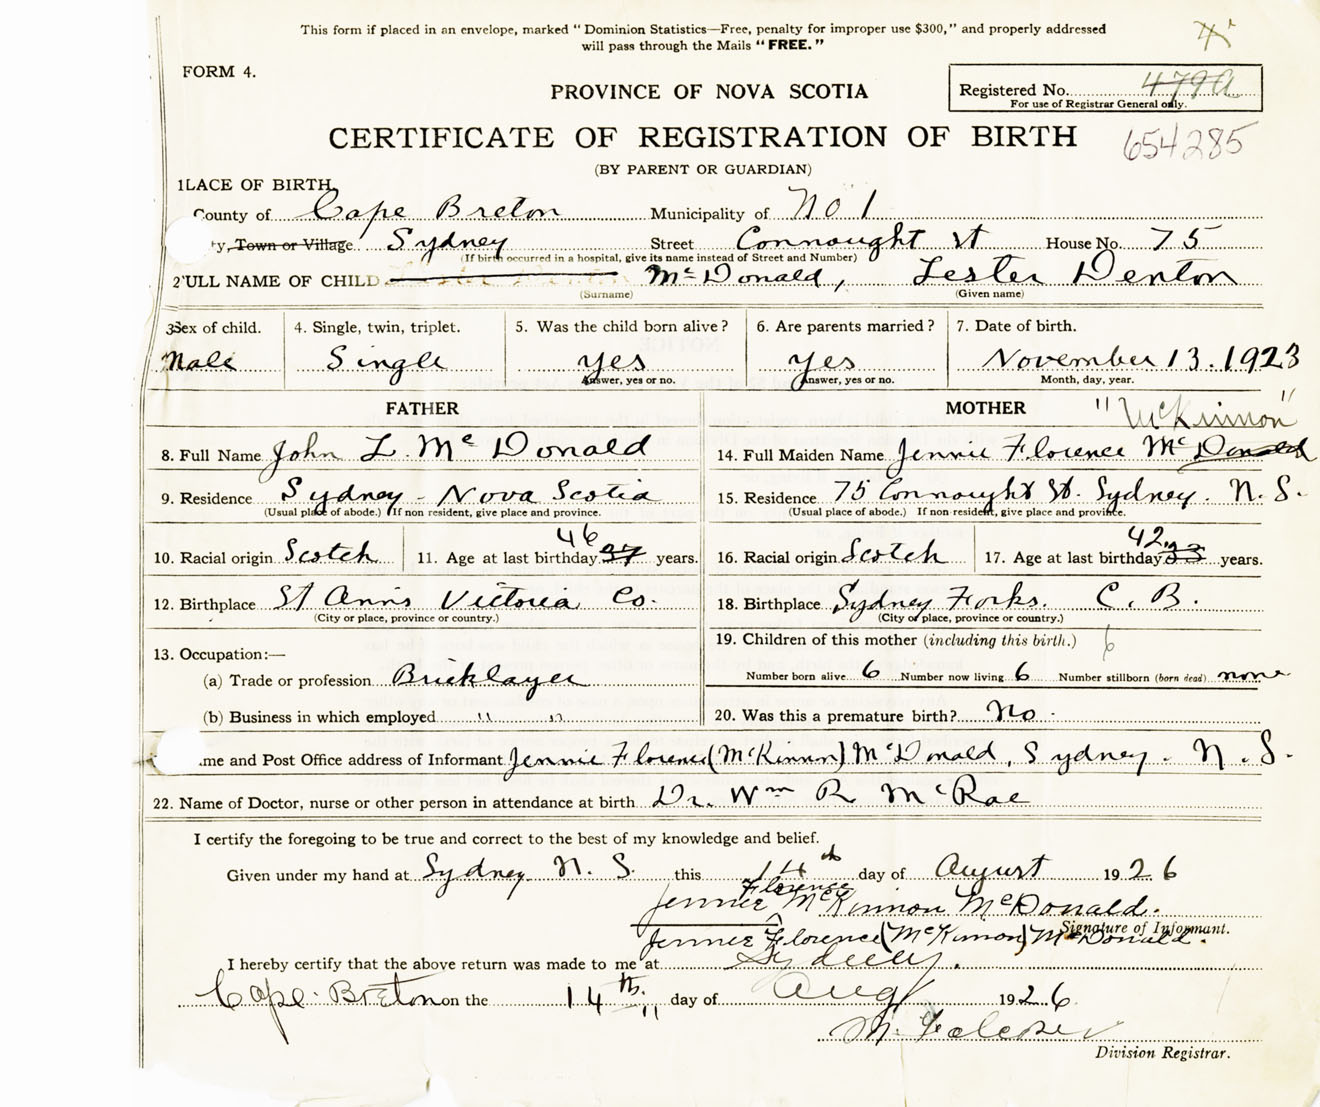 This form if placed in an envelope, marked "Dominion Statistics—Free, penalty for improper use $300," and properly addressed
will pass through the Mails "FREE."
FORM 4.
PROVINCE OF NOVA SCOTIA
Registered No. 479a
For use of Registrar General only.
CERTIFICATE OF REGISTRATION OF BIRTH 654285
(BY PARENT OR GUARDIAN)
1LACE OF BIRTH
County of Cape Breton Municipality of No 1
ty, Town or Village Sydney Street Connought St House No. 75
(If birth occurred in a hospital, give its name instead of Street and Number)
2 ULL NAME OF CHILD McDonald, Lester Denton
(Surname) (Given name)
3 Sex of child. 4. Single, twin, triplet. 5. Was the child born alive? 6. Are parents married? 7. Date of birth.
Male Single yes yes November 13. 1923
Answer, yes or no. Answer, yes or no. Month, day, year.
FATHER MOTHER "McKinnon"
8. Full Name John L. McDonald 14. Full Maiden Name Jennie Florence McDonald
9. Residence Sydney - Nova Scotia 15. Residence 75 Connought St. Sydney. N. S.
(Usual place of abode.) If non resident, give place and province. (Usual place of abode.) If non-resident, give place and province.
46 42
10. Racial origin Scotch 11. Age at last birthday 37 years. 16. Racial origin Scotch 17. Age at last birthday 33 years.
12. Birthplace St Anns Victoria Co. 18. Birthplace Sydney Forks. C. B.
(City or place, province or country.) (City or place, province or country.)
13. Occupation:— 19. Children of this mother (including this birth.) 6
(a) Trade or profession Bricklayer Number born alive 6 Number now living 6 Number stillborn (born dead) none
(b) Business in which employed " " 20. Was this a premature birth? No.
me and Post Office address of Informant Jennie Florence (McKinnon) McDonald, Sydney. N. S.
22. Name of Doctor, nurse or other person in attendance at birth Dr. Wm R McRae
I certify the foregoing to be true and correct to the best of my knowledge and belief.
Given under my hand at Sydney N. S. this 14th day of August 1926
Florence
Jennie McKinnon McDonald.
Signature of Informant.
Jennie Florence (McKinnon) McDonald.
I hereby certify that the above return was made to me at Sydney.
Cape Breton on the 14th. day of Aug 1926
M.
Division Registrar.